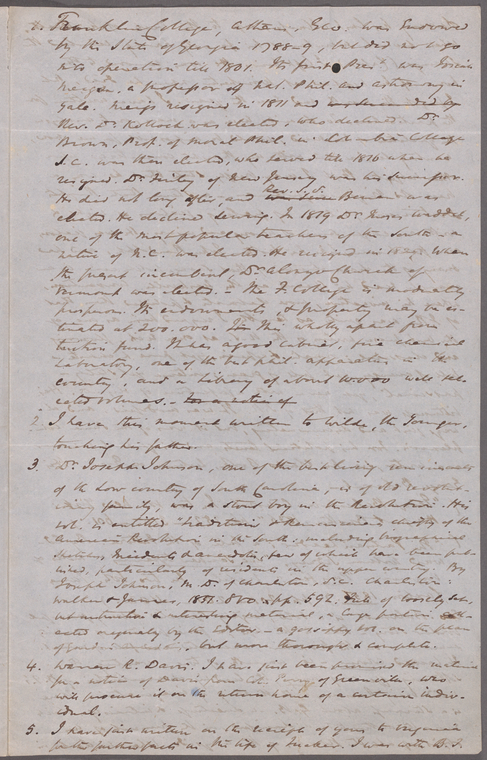 1. Franklin College, Athens, Geo. was Endowed
by the State of Georgia 1788-9, but did not go
into operation till 1801. Its first Pres. was Josiah
Meigs, a professor of Nat. Phil. and astronomy in
Yale. Meigs resigned in 1811 and was succeeded by
Rev. Dr. Kollock was elected, who declined. Dr.
Brown, Prof. of Moral Phil. in Columbia College
S.C. was then elected, who served till 1816 when he
resigned. Dr. Finley of New Jersey was his successor.
He died not long after, and Rev. Beman was
elected. He declined serving. In 1819 Dr. Moses Waddel,
one of the most popular teachers of the South - a
native of N.C. was elected. He resigned in when
the present incumbent Dr. Alonzo Church of
Vermont was elected. - The F. College is moderately
prosperous. Its endowments, & property may be es-
timated at 200.000. This is wholly apart from
tuition fund. It has a good cabinet, fine chemical
Laboratory, one of the best phil. apparatus in the
country, and a Library of about 10000 well sel-
ected volumes. - For a notice of
2. I have this moment written to Wilde, the Younger,
touching his father.
3. Dr. Joseph Johnson, one of the best living reminiscents
of the Low country of South Carolina, is of old revolu-
tionary family, was a stout boy in the Revolution. His
vol. is entitled "Traditions & Reminiscences chiefly of the
American Revolution in the South, including biographical
sketches, Incidents & anecdotes, few of which have been pub-
lished, particularly of residents in the upper country. By
Joseph Johnson, M.D. of Charleston, S.C. Charleston:
Walker & James, 1851. 8vo. pp. 592. Full of loosely but
instructive & interesting material, a large portion coll-
ected originally by the Editor - a gossippy vol. on the plan
of but more thorough & complete.
4. Warren R. Davis. I have just been promised the material
for a notice of Davis from Col. Perry of Greenville, who
will procure it on the return home of a certain indiv-
idual.
5. I have just written on the receipt of yours to Virginia
for the further facts in the life of Tucker. I was with B. T.